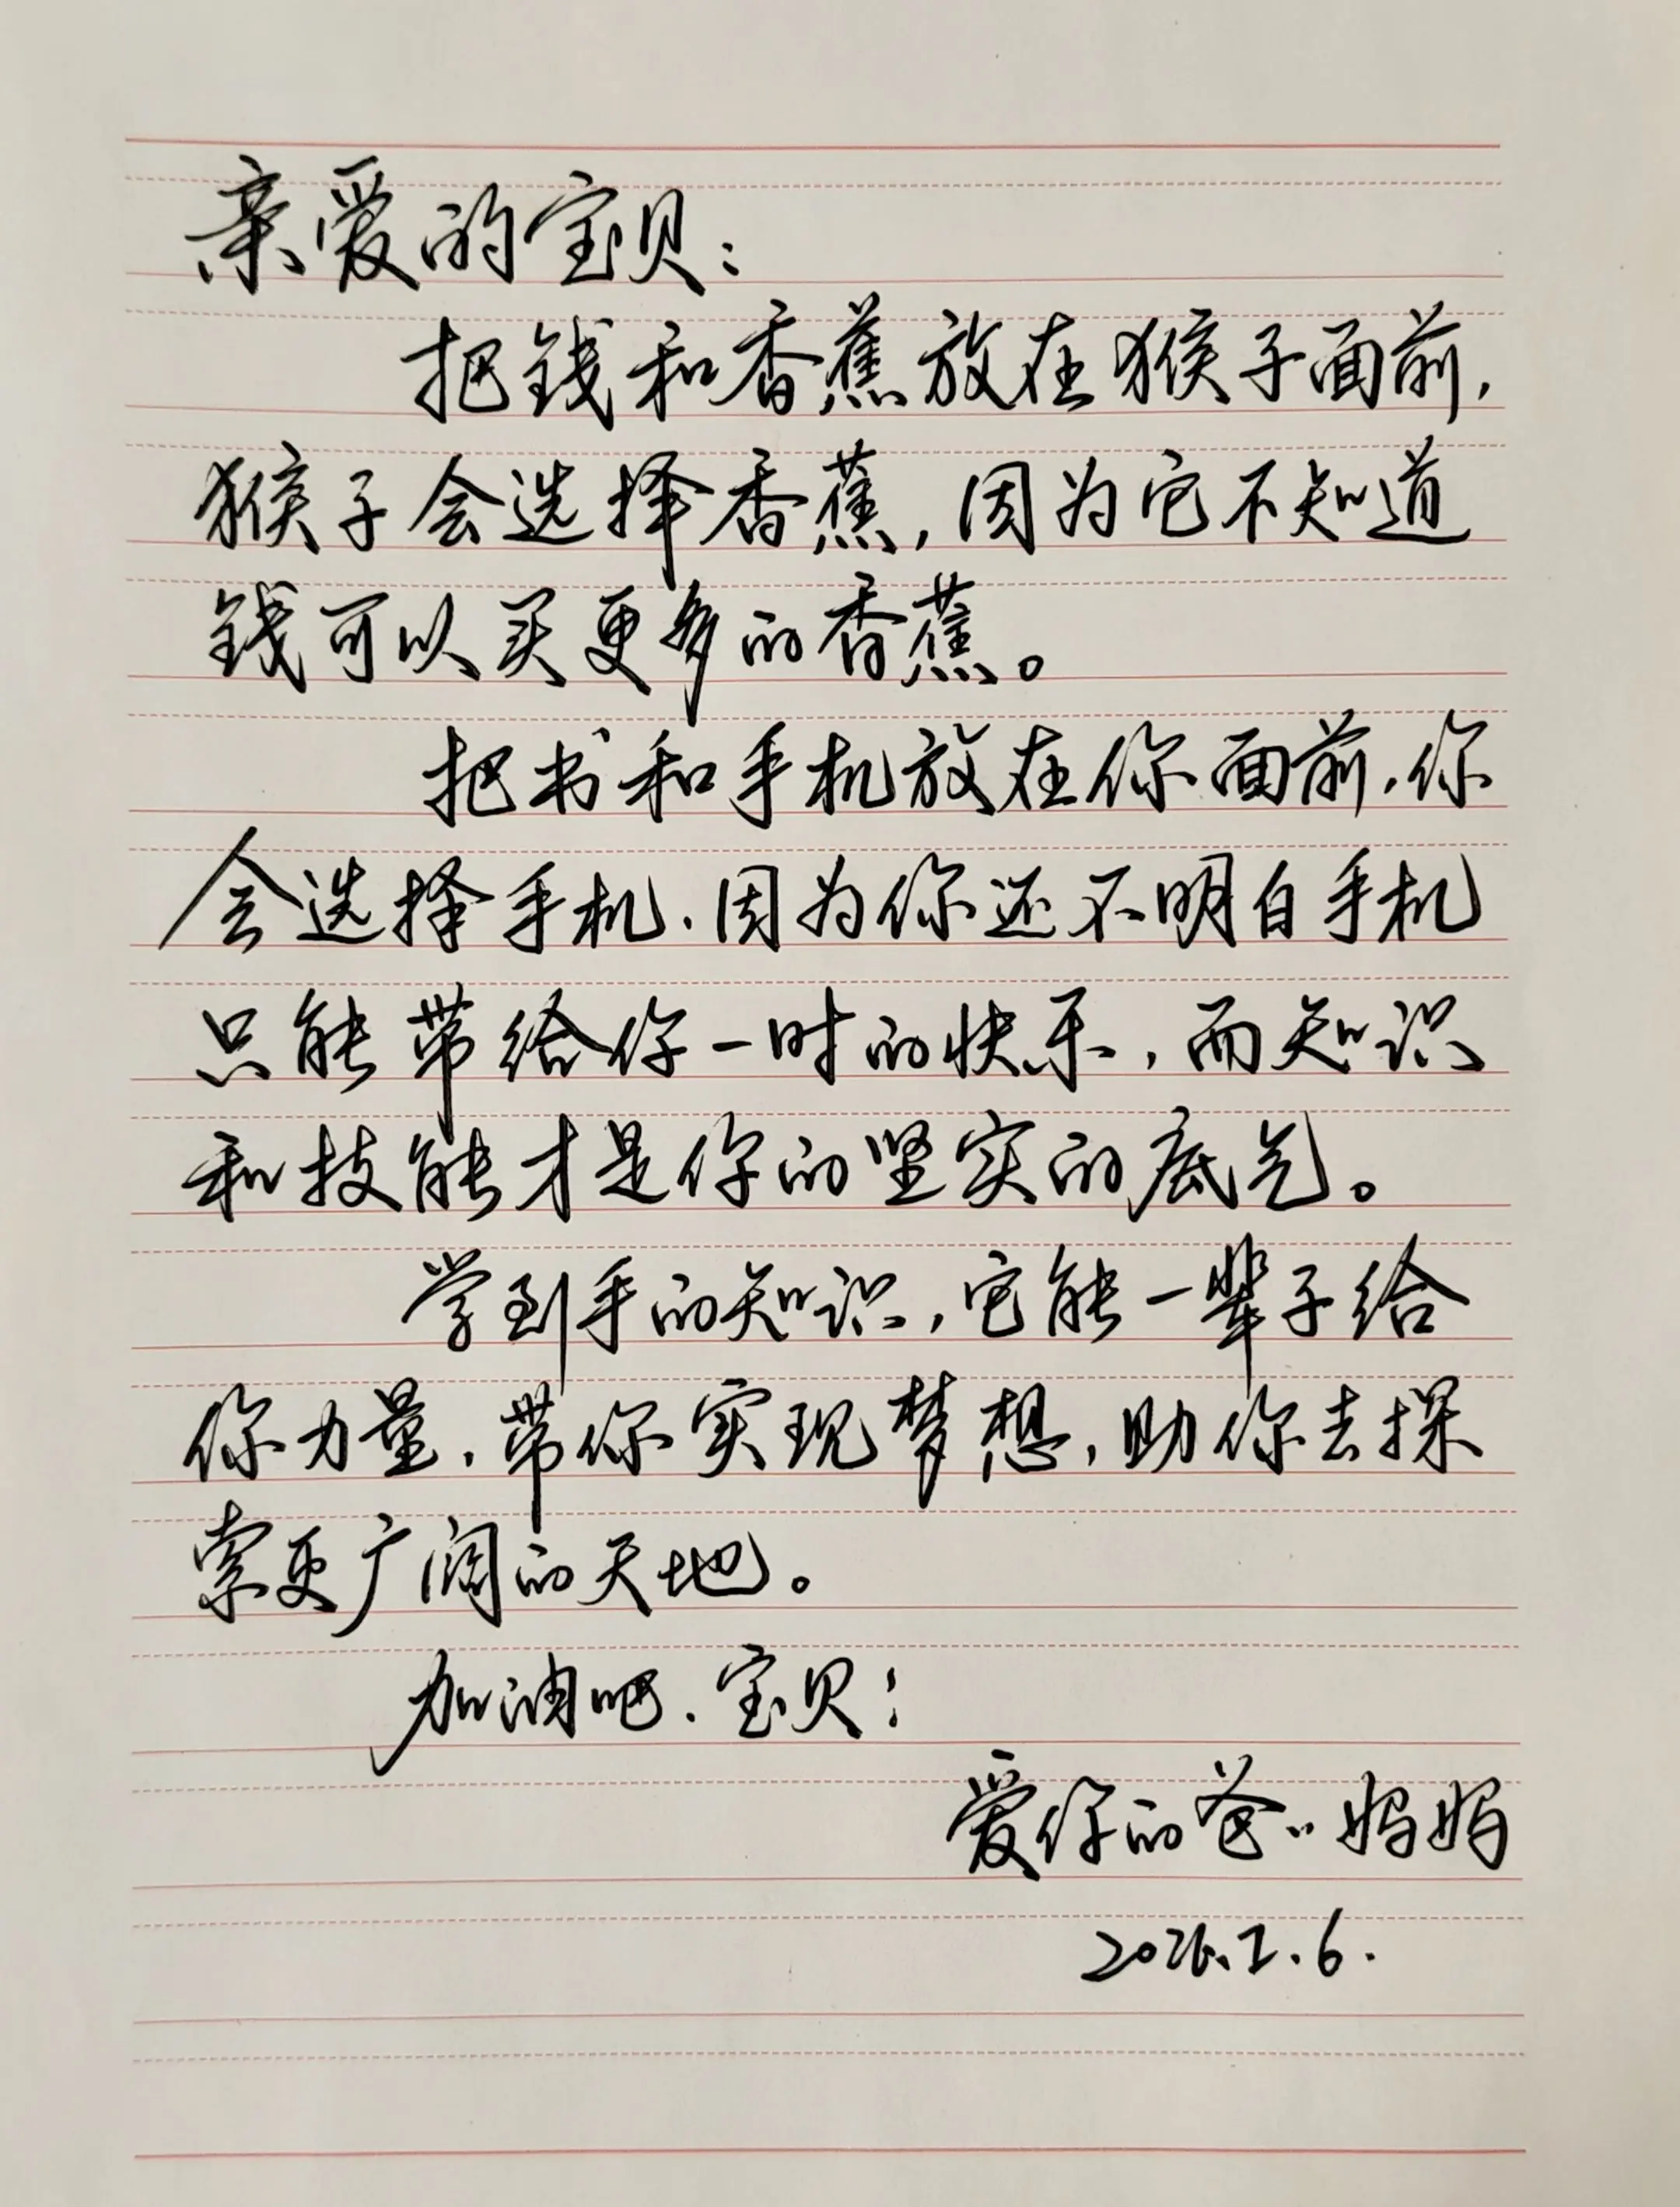 亲爱的宝贝：
把钱和香蕉放在猴子面前，
猴子会选择香蕉，因为它不知道
钱可以买更多的香蕉。
把书和手机放在你面前，你
会选择手机，因为你还不明白手机
只能带给你一时的快乐，而知识
和技能才是你的坚实的底气。
学到手的知识，它能一辈子给
你力量，带你实现梦想，助你去探
索更广阔的天地。
加油吧，宝贝！
爱你的爸爸妈妈
2026.2.6.